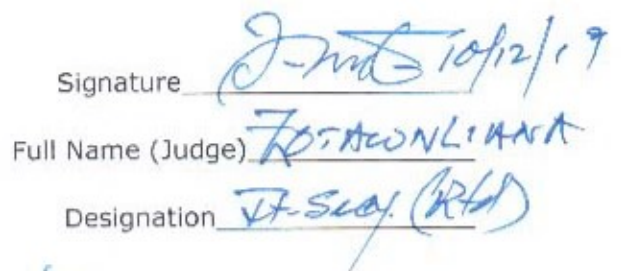 Signature 10/12/19
Full Name (Judge) ZOTAWNLIANA
Designation Jt. Secy. (Rtd)